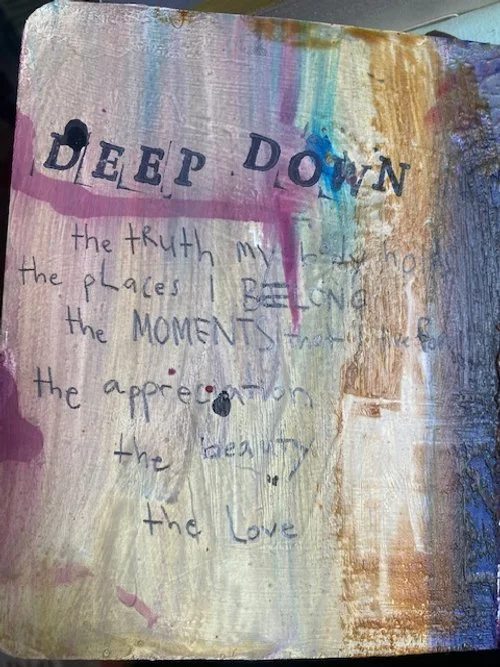 DEEP DOWN
the tRuth my body
the pLaces I BELONG
the MOMENTS that I
the appreciation
the beauty
the Love